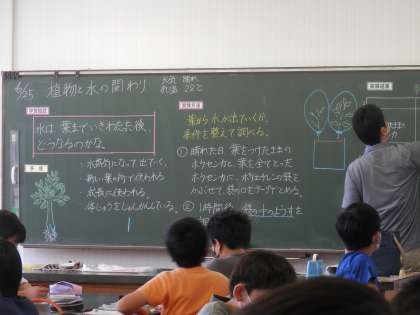 6/25 植物と水の関わり
天気 晴れ
気温 28℃
学習問題
水は葉までいきわたった後、
どうなるのかな。
予想
・水蒸気になって出ていく。
・成長に使われる。
・体じゅうをじゅんかんしている。
実験方法
葉から水が出ていくか、
条件を整えて調べる。
①晴れた日、葉をつけたままの
ホウセンカと、葉を全てとった
ホウセンカに、ポリエチレンの袋を
かぶせて、袋の口をテープでとめる。
②1時間後、袋の中のようすを
実験結果